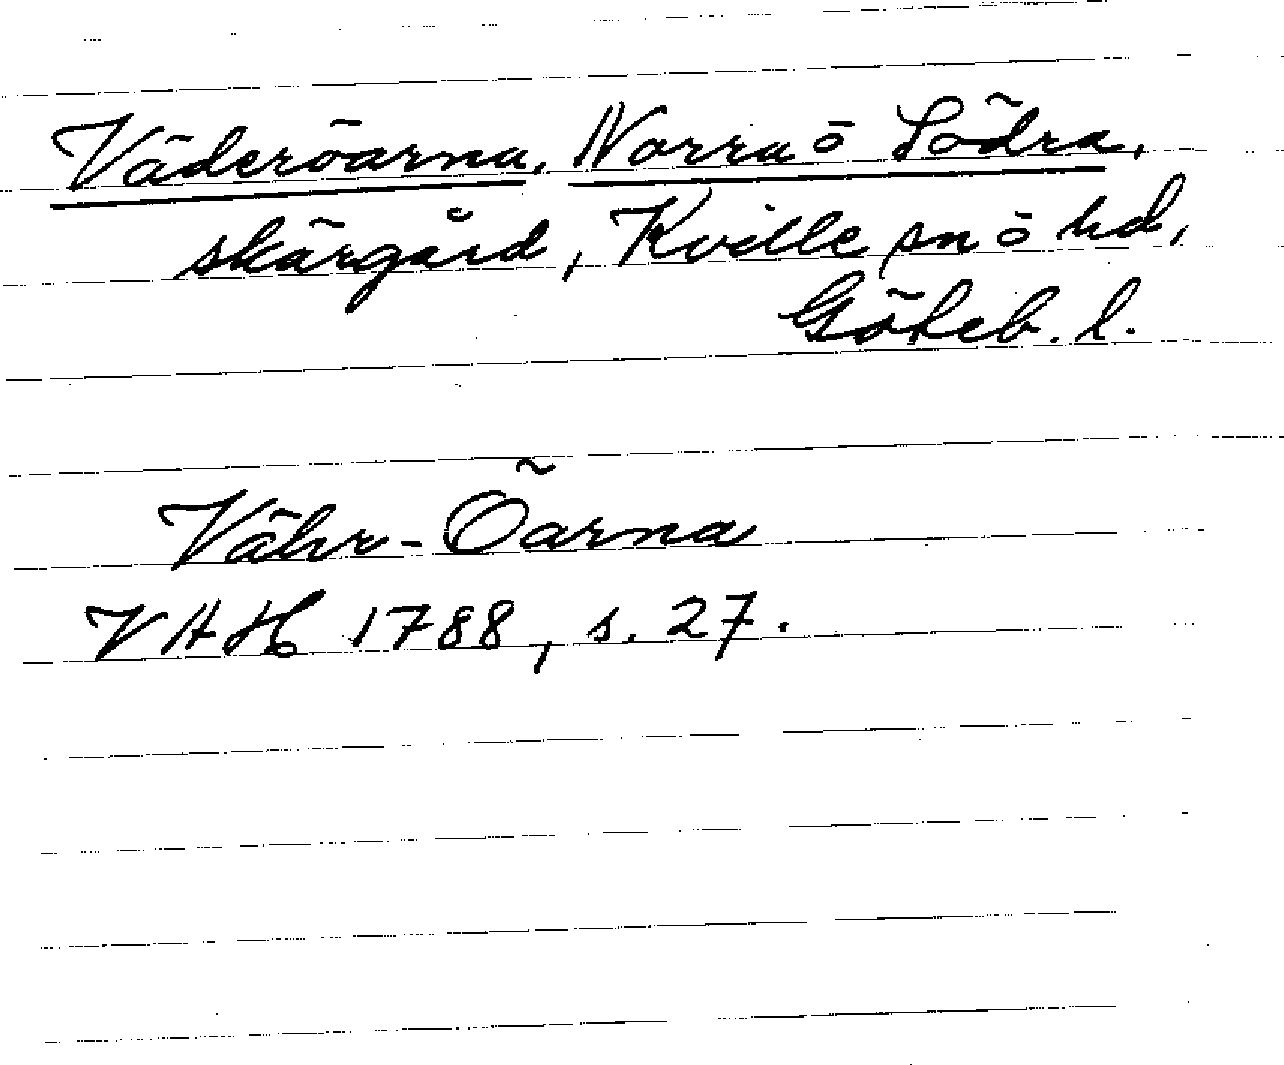 Väderöarna, Norra o Södra,
skärgård, Kville sn o hd,
Göteb. l.
Vähr-Öarna
VAH 1788, s. 27.